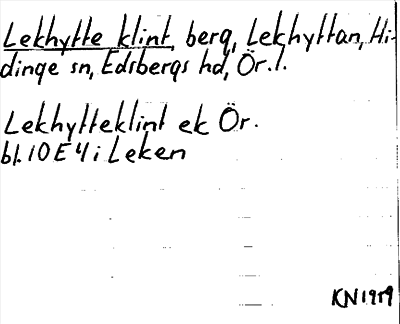 Lekhytte klint, berg, Lekhyttan, Hi-
dinge sn, Edsbergs hd, Ör. l.
Lekhytteklint ek Ör.
bl. 10 E 4 i Leken
KN 1959